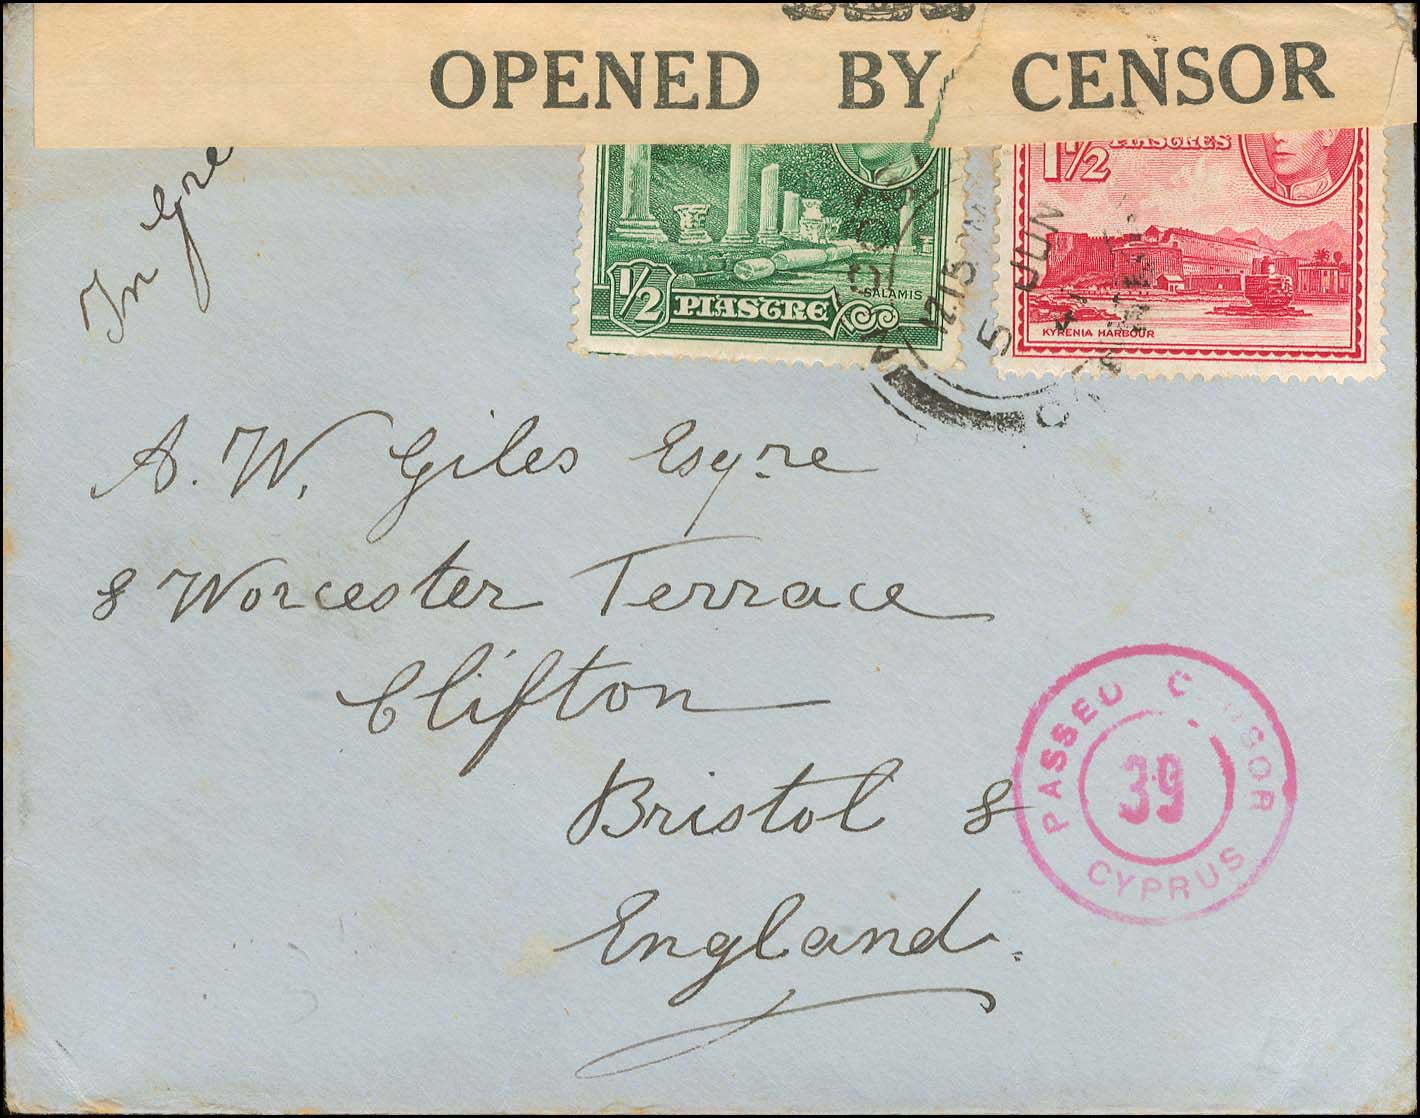 OPENED BY CENSOR
In Gre
1/2 PIASTRE
SALAMIS
1 1/2 PIASTRES
KYRENIA HARBOUR
12.15 PM
5 JUN
41
A. W. Giles Esqre
8 Worcester Terrace
Clifton
Bristol 8
England.
PASSED CENSOR
39
CYPRUS